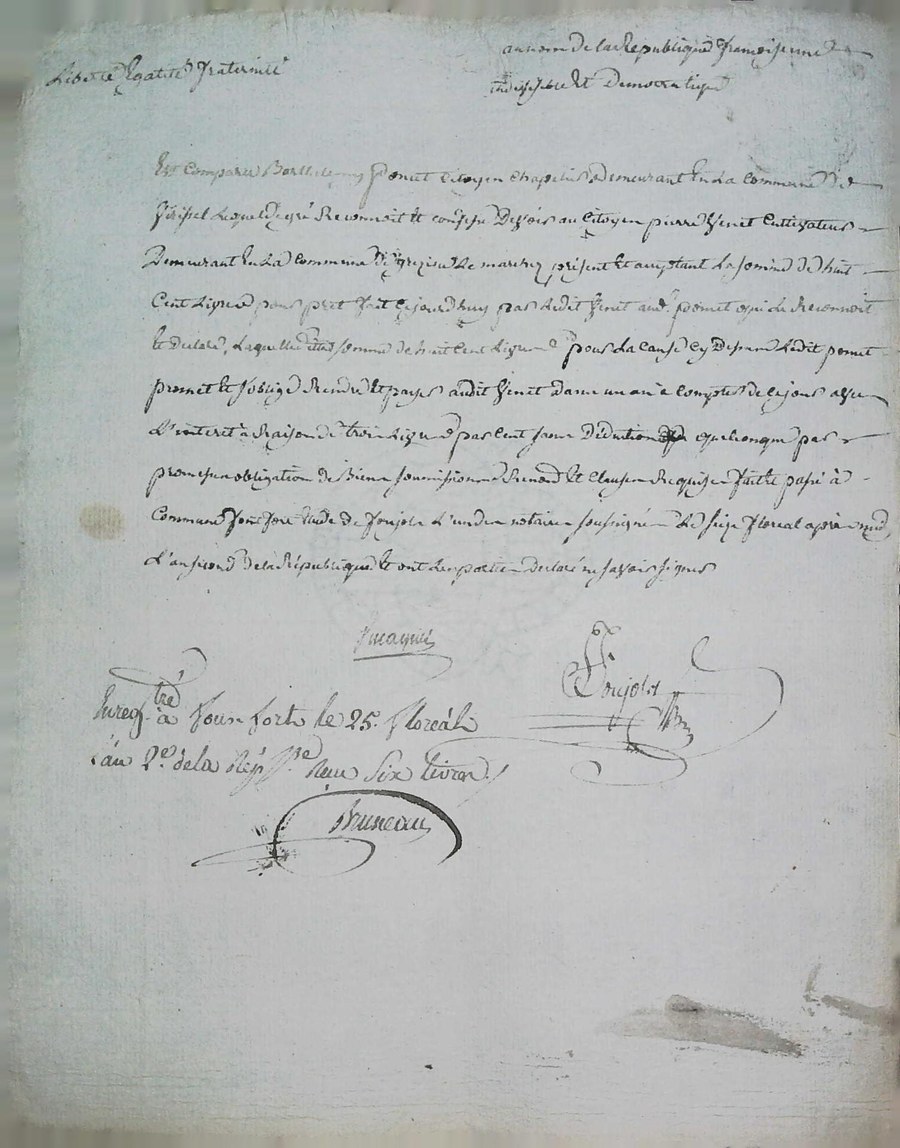 Liberté Egalité Fraternité
au nom de la Republique françoise une
indivisible Et Democratique
Est Comparu Barthelemy ponet Citoyen Chapelier Demeurant En La Commune de
Lequel De gré Reconnoit Et confesse Devoir au Citoyen pierre Venet Cultivateur
Demeurant En La Commune de grezieu Le marché présent Et acceptant La somme de huit
Cent Livres pour pret fait Cejourdhuy par Ledit Venet aud. ponet qui Le Reconnoit
Et Declare, Laquelle ditte somme de huit Cent Livres pour La Cause Cy Dessus Ledit ponet
promet Et soblige Rendre Et payer audit Venet Dans un an à Compter de Cejour avec
L'interet à Raison de trois Livres par Cent sans Deduction quelconque par
promesse obligation de Biens soumissions Renon. Et Clauses Requises fait Et passé à
Commune Etude de Foujols L'un des notaires soussignés Le seize floreal après midi
L'an second de la République Et ont Les parties Declaré ne savoir signer
Foujols
Enreg.tré à le 25. floréal
l'an 2.e de la Rép. Reçu Six livres
Bruneau